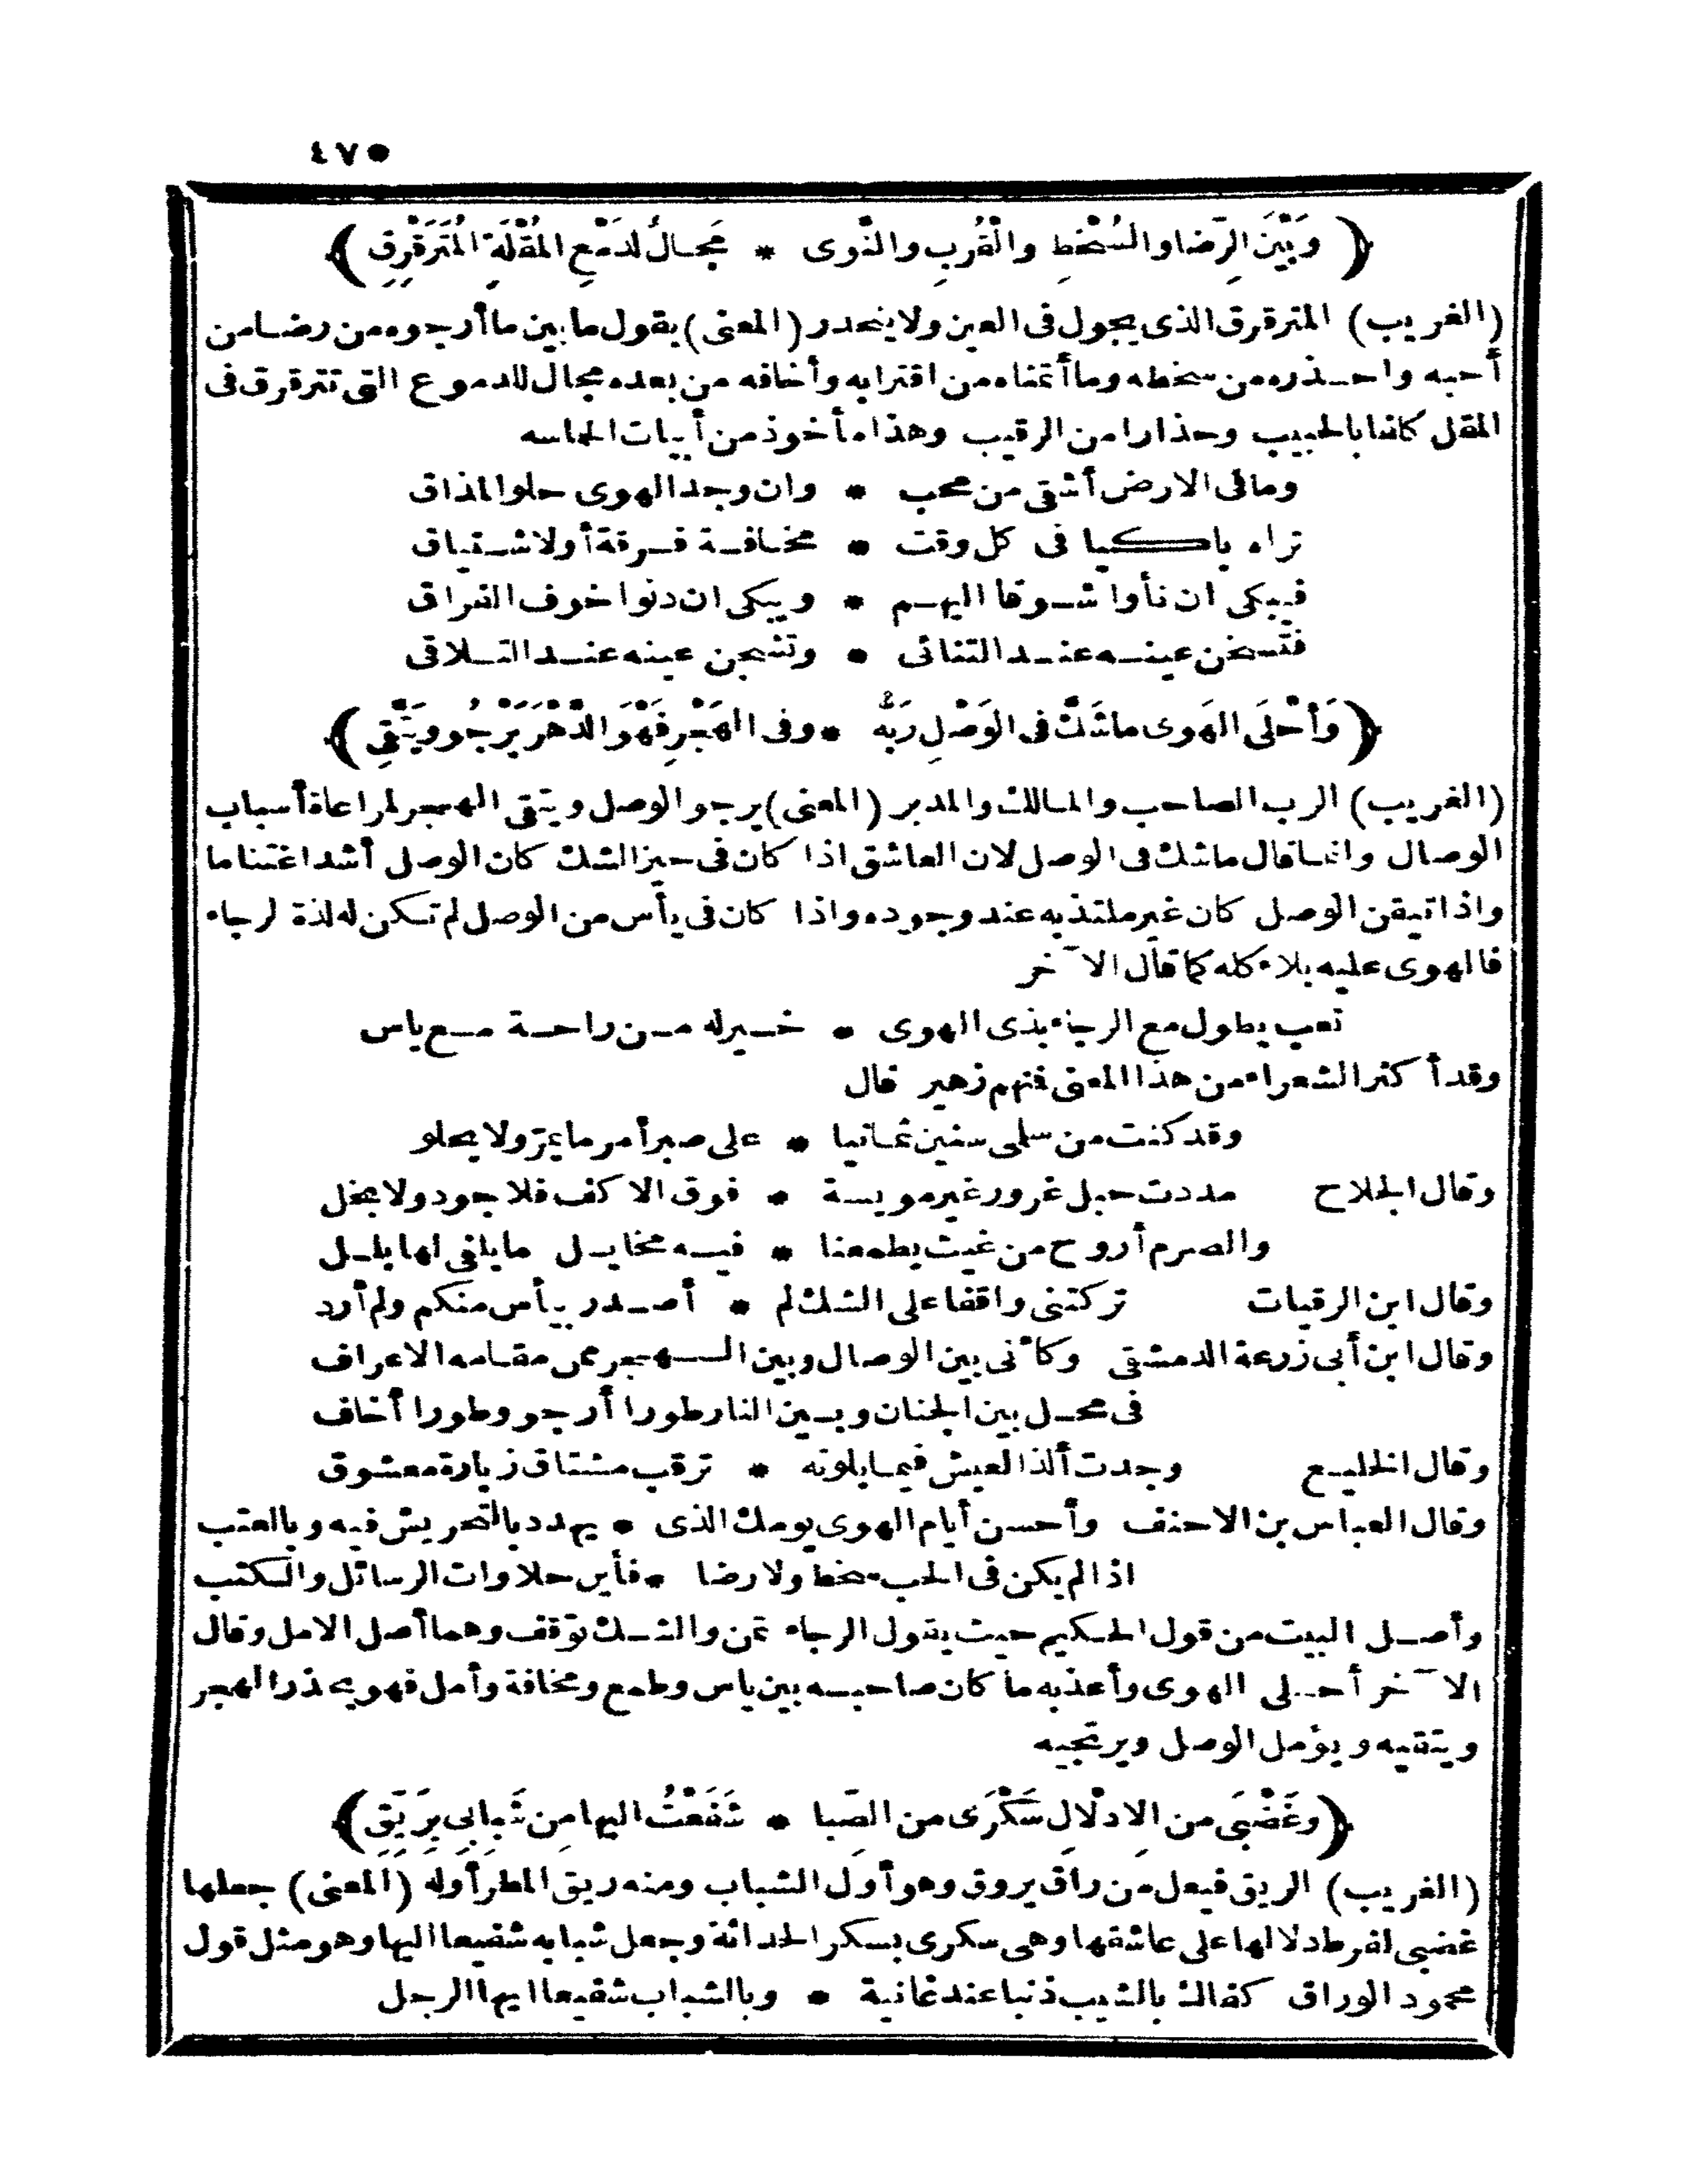 ٤٧٥
﴿ وَبَيْنَ الرِّضا والسُّخْطِ والْقُرْبِ والنَّوى * مَجالٌ لدَمْعِ المُقْلَةِ المُتَرَقْرِقِ ﴾
(الغريب) المترقرق الذى يجول فى العين ولا ينحدر (المعنى) يقول ما بين ما أرجوه من رضا من
أحبه واحذره من سخطه وما أتمناه من اقترابه وأخافه من بعده مجال للدموع التى تترقرق فى
المقل كلفا بالحبيب وحذارا من الرقيب وهذا مأخوذ من أبيات الحماسه
وما فى الارض أشقى من محب * وان وجد الهوى حلو المذاق
تراه باكيا فى كل وقت * مخافة فرقة أو لاشتياق
فيبكى ان نأوا شوقا اليهم * ويبكى ان دنوا خوف الفراق
فتسخن عينه عند التنائى * وتسخن عينه عند التلاقى
﴿ وَأحْلَى الهَوى ما شَكَّ فى الوَصْلِ رَبُّهُ * وفى الهَجْرِ فَهْوَ الدَّهْرَ يَرْجُو ويَتَّقِى ﴾
(الغريب) الرب الصاحب والمالك والمدبر (المعنى) يرجو الوصل ويتقى الهجر لمراعاة أسباب
الوصال وانما قال ما شك فى الوصل لان العاشق اذا كان فى حيز الشك كان الوصل أشد اغتناما
واذا تيقن الوصل كان غير ملتذ به عند وجوده واذا كان فى يأس من الوصل لم تكن له لذة لرجاء
فالهوى عليه بلاء كله كما قال الآخر
تعب يطول مع الرجاء بذى الهوى * خير له من راحة مع ياس
وقد أكثر الشعراء من هذا المعنى فمنهم زهير قال
وقد كنت من سلمى سنين ثمانيا * على صبر أمر ما يمرّ ولا يحلو
وقال الجلاح مددت حبل غرور غير مويسة * فوق الاكف فلا جود ولا بخل
والصرم أروح من غيث يطمعنا * فيه مخايل ما يلفى لها بلل
وقال ابن الرقيات تركتنى واقفا على الشك لم * أصدر بيأس منكم ولم أرد
وقال ابن أبى زرعة الدمشقى وكأنى بين الوصال وبين الهجر ممن مقامه الاعراف
فى محل بين الجنان وبين النار طورا أرجو وطورا أخاف
وقال الخليع وجدت ألذ العيش فيما بلوته * ترقب مشتاق زيارة معشوق
وقال العباس بن الاحنف وأحسن أيام الهوى يومك الذى * يهدد بالتحريش فيه وبالعتب
اذا لم يكن فى الحب سخط ولا رضا * فأين حلاوات الرسائل والكتب
وأصل البيت من قول الحكيم حيث يقول الرجاء تمن والشك توقف وهما أصل الامل وقال
الآخر أحلى الهوى وأعذبه ما كان صاحبه بين ياس وطمع ومخافة وأمل فهو يحذر الهجر
ويتقيه ويؤمل الوصل ويرتجيه
﴿ وغَضْبَى من الادْلالِ سَكْرَى من الصّبا * شَفَعْتُ اليها مِن شَبابِى بِرَيِّقِ ﴾
(الغريب) الريق فيعل من راق يروق وهو أول الشباب ومنه ريق المطر أوله (المعنى) جعلها
غضبى لفرط دلالها على عاشقها وهى سكرى بسكر الحداثة وجعل شبابه شفيعا اليها وهو مثل قول
محمود الوراق كفاك بالشيب ذنبا عند غانية * وبالشباب شفيعا ايها الرجل